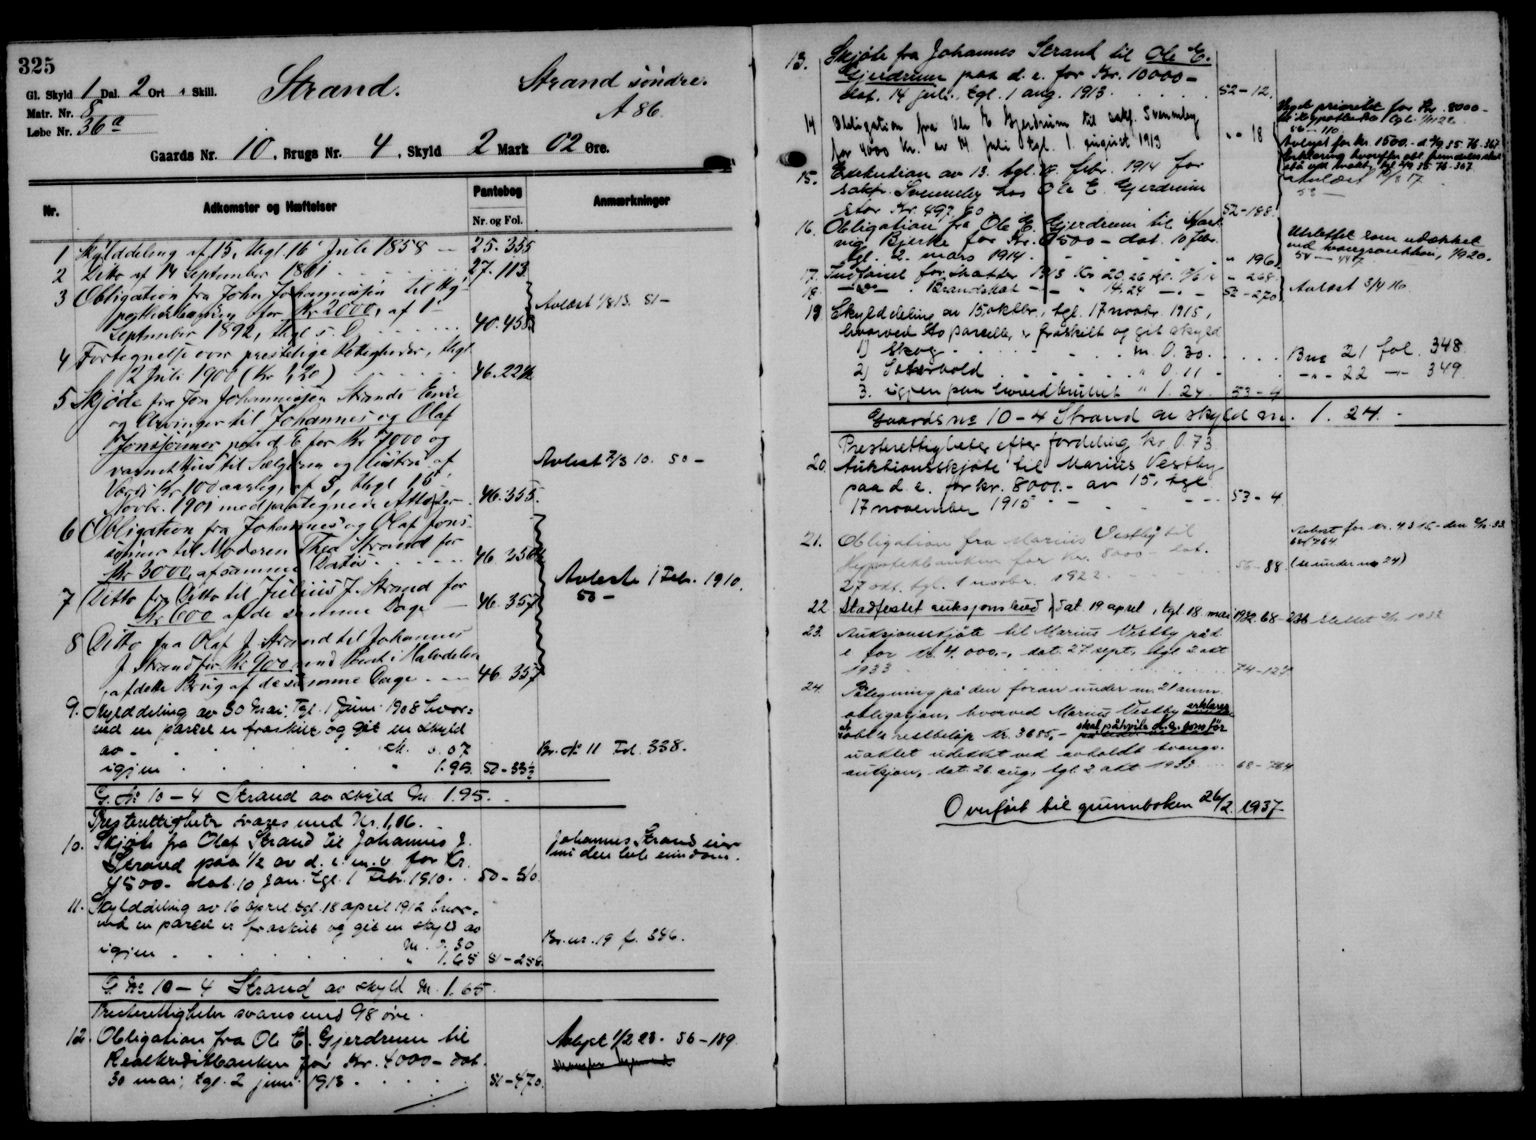 325
Gl. Skyld 1 Dal. 2 Ort " Skill.
Matr. Nr. 8
Løbe Nr. 36a
Strand.
Strand søndre.
A 86.
Gaards Nr. 10, Brugs Nr. 4, Skyld 2 Mark 02 Øre.
Nr.
Adkomster og Hæftelser
Pantebog
Nr. og Fol.
Anmærkninger
1 Skylddeling af 15, thgl. 16 Juli 1858 — 25.335
2 Ditto af 14 September 1861 27.113
3 Obligation fra John Johannessen til Hy-
pothekbanken for Kr 2000, af 1
September 1892, thgl. s. D. 40.458
Avlæst 1/8 13. 51 —
4 Fortegnelse over præstelige Rettigheder, thgl.
2 Juli 1900 (Kr 1,20) 46.224
5 Skjøde fra Jon Johannessen Strands Enke
og Arvinger til Johannes og Olaf
Jonssønner paa d. E. for Kr 7000 og
varnethus til Sælgeren og hustru af
Værdi Kr 100 aarlig, af 5, thgl. 15
Novbr. 1901 med paategnede Attester 46.355.
Avlæst 2/3 10. 50 —
6 Obligation fra Johannes og Olaf Jons-
sønner til Moderen Thea Strand for
Kr 3000, af samme Datoer 46.356
7 Ditto fra Ditto til Julius J. Strand for
Kr 600 af de samme Dage — 46.357
Avlæste 1 Feb. 1910.
50 —
8 Ditto fra Olaf J. Strand til Johannes
J. Strand for Kr 900 med Pant i Halvdelen
af dette Brug af de samme Dage — 46.357
9. Skylddeling av 30 Mai, tgl. 1 Juni 1908 hvor-
ved en parsel er fraskilt og git en skyld
av M. 0.07
Br. No 11 Fol. 338.
igjen " 1.95. 50-33
G. No 10 — 4 Strand av skyld M. 1.95.
Presterettigheter svares med Kr. 1,06.
10. Skjøte fra Olaf Strand til Johannes J.
Strand paa 1/2 av d. e. m. v. for Kr.
4500 — dat. 10 jan. tgl. 1 Febr. 1910. 50 - 510.
Johannes Strand eier
nu den hele eiendom.
11. Skylddeling av 16 april tgl. 18 april 1912 hvor-
ved en parsel er fraskilt og git en skyld av
M. 0.30
Br. nr. 19 f. 386.
igjen " 1.65 51-258.
G. No 10 — 4 Strand av skyld M. 1.65.
Presterettigheter svares med 98 øre.
12. Obligation fra Ole E. Gjerdrum til
Realkreditbanken for Kr. 4000 — dat.
30 mai, tgl. 2 juni 1913. 51-470.
Avlyst 1/2 23. 56-189
13. Skjøte fra Johannes Strand til Ole E.
Gjerdrum paa d. e. for Kr. 10000 —
dat. 14 juli, tgl. 1 aug. 1913. 52-12.
14 Obligation fra Ole E Gjerdrum til sakf. Svenneby
for 4000 kr. av 14 juli tgl. 1. august 1913 " " 18
Avlyst for kr. 1500.- d. 4/9 35 - 76 - 367
15. Exekution av 13. tgl. 14 febr. 1914 for
sakfr. Svenneby hos Ole E. Gjerdrum
stor Kr. 497.60 52-188.
16. Obligation fra Ole E. Gjerdrum til
Bjerke for Kr. 1500 — dat. 10 febr.
tgl. 2. mars 1914. " 196
Utslettet som udækket
ved tvangsauktion, 1920.
17. Utlæg for skatter 1913 Kr 20,26 " 268.
18. Brandskat 14.24 52-270.
Avlæst 3/4 16.
19 Skylddeling av 15 oktbr., tgl. 17 novbr. 1915,
hvorved to parseller er fraskilt og git skyld
1) Skog m. 0.30.
Bno 21 fol. 348
2) " 0.11
—"— 22 —"— 349.
3. igjen paa hovedbruket " 1.24. 53-4
Gaards no 10 - 4 Strand av skyld m. 1. 24.-
Presterettigheter efter fordeling kr. 0.73
20. Auktionsskjøte til Marius Vestby
paa d. e. for kr. 8000.- av 15, tgl.
17 november 1915 53-4
21. Obligation fra Marius Vestby til
Hypotekbanken for Kr. 8000 — dat.
27 okt. tgl. 1 novbr. 1922. 56-88
(se under no 24)
22 Stadfestet auksjonsbud dat 19 april, tgl 18. mai 1932. 68-236
23. Auksjonsskjøte til Marius Vestby på d
e for kr. 4.000.-, dat. 27 sept., tgl. 2 okt
1933 74-127
24. Påtegning på den foran under nr. 21 anm.
obligasjon, hvorved Marius Vestby erklærer
at obl's restbeløp kr. 3685,- skal påhvile d. e. som før
uaktet udekket ved avholdt tvangs-
auksjon, dat. 26 aug., tgl. 2 okt 1933 68-764
Overført til grunnboken 26/2 1937